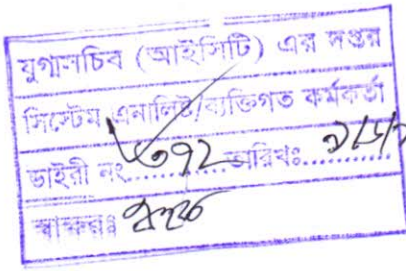 যুগ্মসচিব (আইসিটি) এর দপ্তর
সিস্টেম এনালিষ্ট/ব্যক্তিগত কর্মকর্তা
ডাইরী নং...৩৭২...তারিখঃ............
স্বাক্ষরঃ